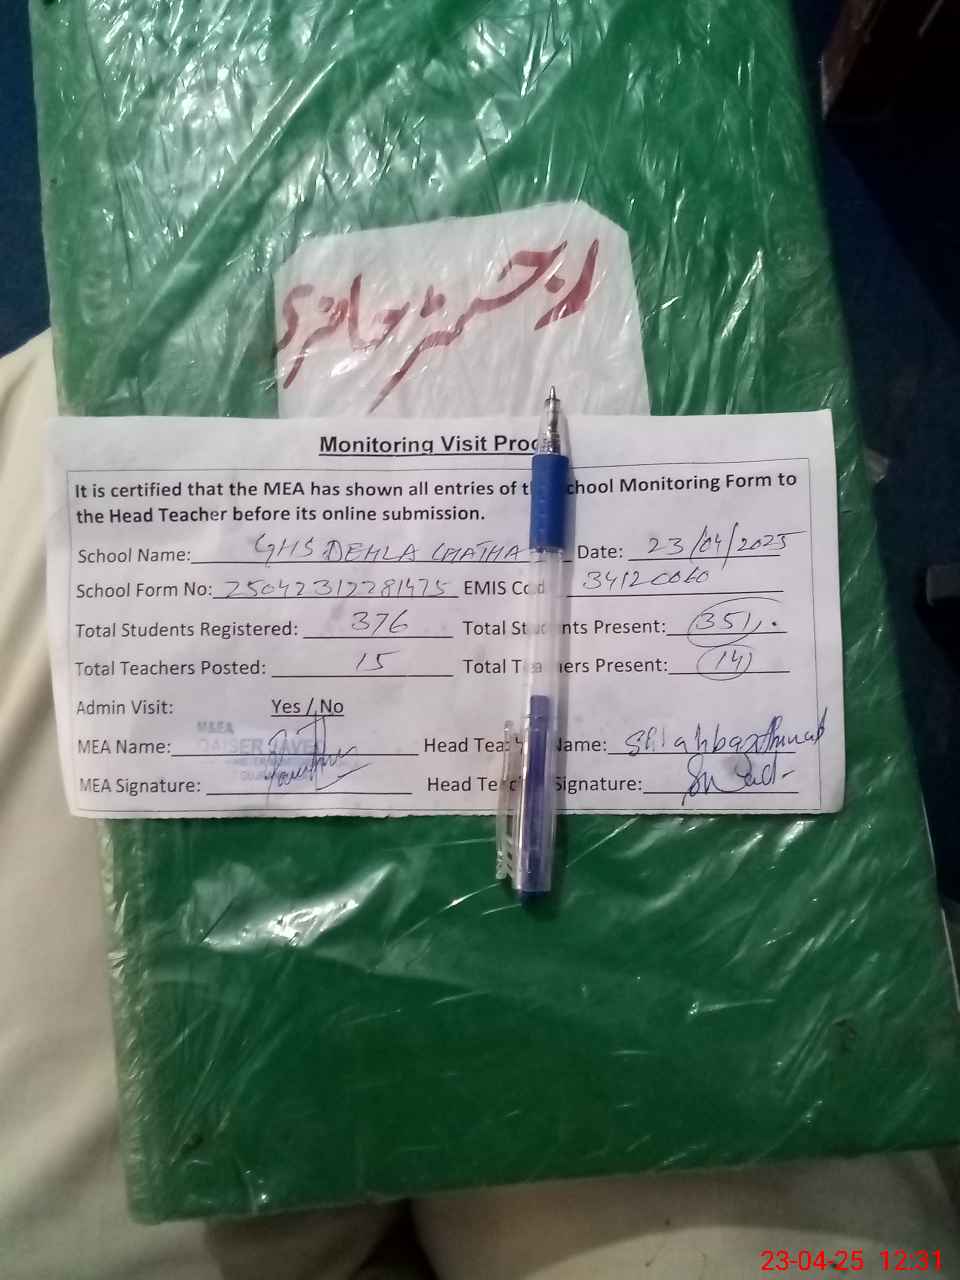 رجسٹر حاضری
Monitoring Visit Proo
It is certified that the MEA has shown all entries of t chool Monitoring Form to
the Head Teacher before its online submission.
School Name: GHS DEHLA CHATHA Date: 23/04/2025
School Form No: 25042312281475 EMIS Cod 34120060
Total Students Registered: 376 Total Students Present: 351
Total Teachers Posted: 15 Total Teachers Present: 14
Admin Visit: Yes / No
MEA Name: M&EA QAISER JAVED Head Tea Name:
MEA Signature: Head Te Signature:
23-04-25 12:31